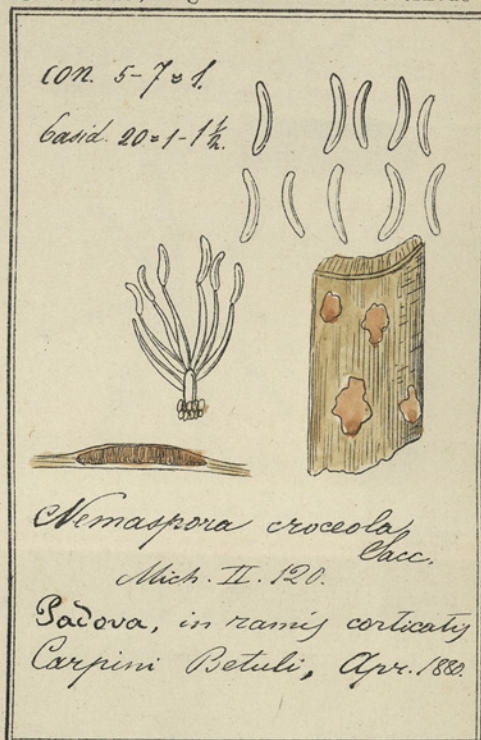 con. 5-7=1.
basid. 20=1-1½.
Nemaspora croceola
Sacc.
Mich. II. 120.
Padova, in ramis corticatis
Carpini Betuli, Apr. 1880.